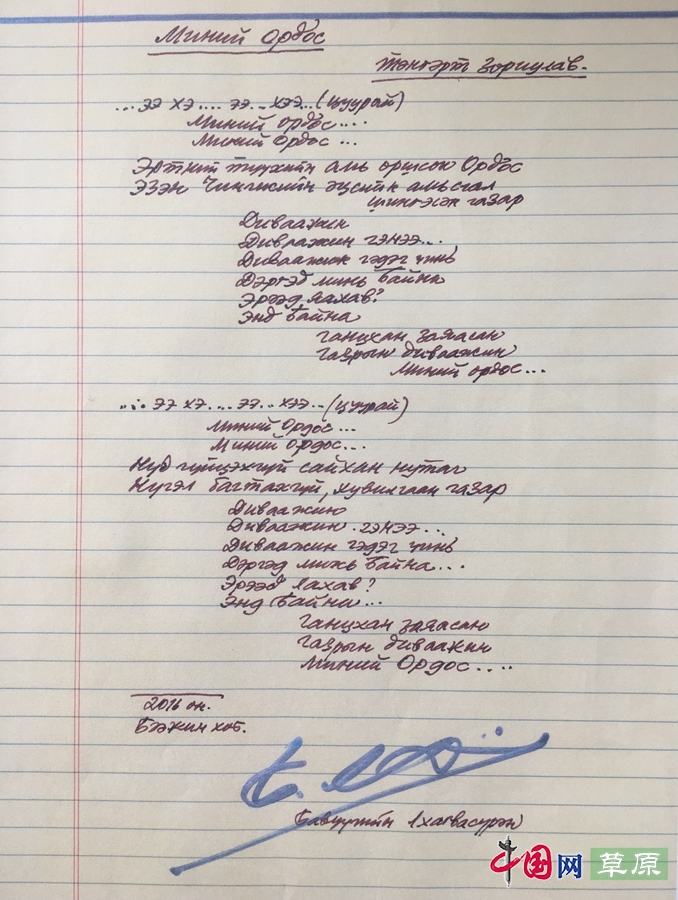 Миний Ордос
Тэнгэрт зориулав.
... ээ хэ.... ээ... хээ... (цуурай)
Миний Ордос...
Миний Ордос...
Эртний түүхийн амь оршсон Ордос
Эзэн Чингисийн эцсийн амьсгал
шингэсэн газар
Диваажин
Диваажин гэнээ...
Диваажин гэдэг чинь
Дэргэд минь байна
Эрээд яахав?
Энд байна
Ганцхан заяасан
Газрын диваажин
Миний Ордос...
... ээ хэ.... ээ... хээ... (цуурай)
Миний Ордос...
Миний Ордос...
Нүд гүйцэхгүй сайхан нутаг
Нүгэл багтахгүй, хувилгаан газар
Диваажин
Диваажин гэнээ...
Диваажин гэдэг чинь
Дэргэд минь байна...
Эрээд яахав?
Энд байна...
Ганцхан заяасан
Газрын диваажин
Миний Ордос....
2016 он.
Бээжин хот.
Бавуугийн Лхагвасүрэн
中国网 草原